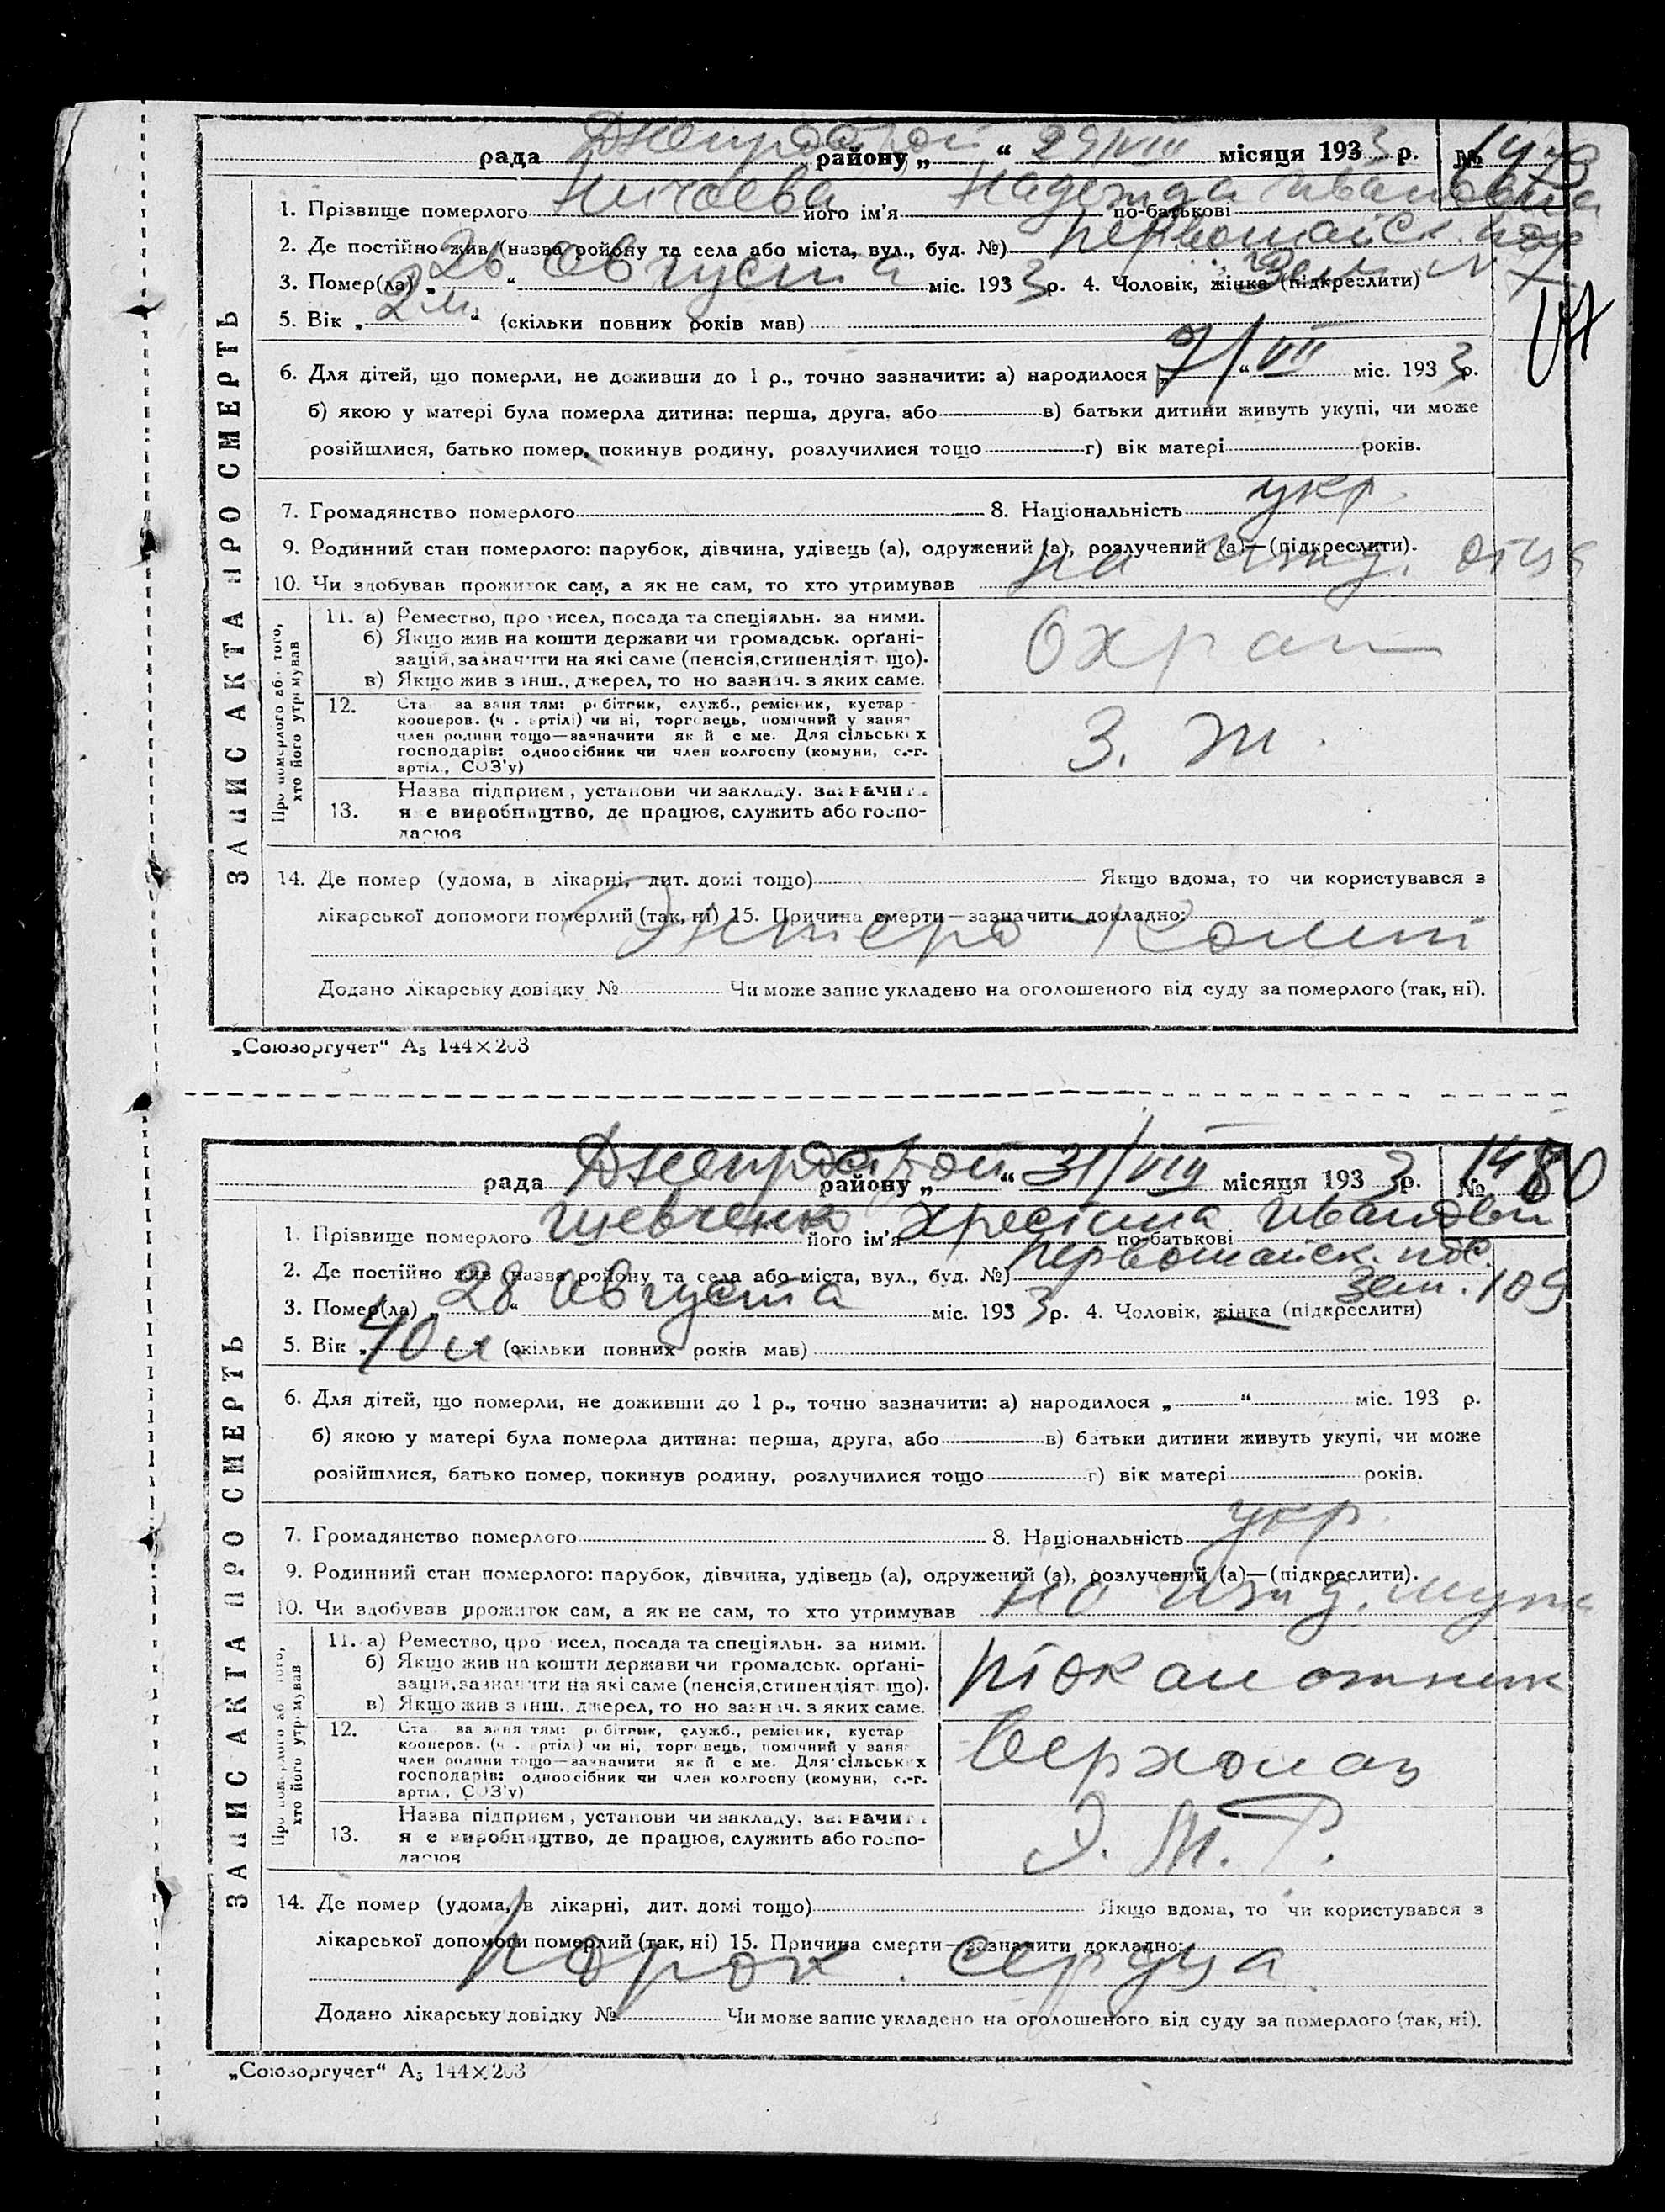 Днепрострой
рада района „ “ 29/VIII місяця 1933 р. № 1479
1. Прізвище померлого Ничаева його ім'я Надежда по-батькові Ивановна
2. Де постійно жив (назва району та села або міста, вул., буд. №) Первомайск. пос
3. Помер(ла) „ 26 “ Августа міс. 1933 р. 4. Чоловік, жінка (підкреслити) Зем. N 7
5. Вік „ 2 м. “ (скільки повних років мав)
6. Для дітей, що померли, не доживши до 1 р., точно зазначити: а) народилося „ 7/ “ VII міс. 1933 р.
б) якою у матері була померла дитина: перша, друга, або в) батьки дитини живуть укупі, чи може
розійшлися, батько помер, покинув родину, розлучилися тощо г) вік матері років.
7. Громадянство померлого 8. Національність укр.
9. Родинний стан померлого: парубок, дівчина, удівець (а), одружений (а), розлучений (а)—(підкреслити).
10. Чи здобував прожиток сам, а як не сам, то хто утримував на ижд. отца
ЗАПИС АКТА ПРО СМЕРТЬ
Про померлого або того, хто його утримував
11. а) Ремество, промисел, посада та спеціяльн. за ними.
б) Якщо жив на кошти держави чи громадськ. орґані-
зацій, зазначити на які саме (пенсія, стипендія т що).
в) Якщо жив з інш. джерел, то но зазнач. з яких саме.
Охран
12. Ста за заня тям: робітник, служб., ремісник, кустар
кооперов. (ч. артілі) чи ні, торговець, помічний у занят
член родини тощо—зазначити як й с ме. Для сільськ х
господарів: одноосібник чи член колгоспу (комуни, с.-г.
артіл., СОЗ'у)
З. Ж.
13. Назва підприєм, установи чи закладу, зазначити
я е виробництво, де працює, служить або госпо-
дарює
14. Де помер (удома, в лікарні, дит. домі тощо) Якщо вдома, то чи користувався з
лікарської допомоги померлий (так, ні) 15. Причина смерти—зазначити докладно:
Энтеро-Колит
Додано лікарську довідку № Чи може запис укладено на оголошеного від суду за померлого (так, ні).
„Союзоргучет“ А₅ 144×203
Днепрострой
рада району „ “ 31/VIII місяця 1933 р. № 1480
1. Прізвище померлого Шевченко його ім'я Хрестина по-батькові Ивановн
2. Де постійно жив (назва району та села або міста, вул., буд. №) Первомайск. пос.
3. Помер(ла) „ 28 “ Августа міс. 1933 р. 4. Чоловік, жінка (підкреслити) Зем. 109
5. Вік „ 40 л. (скільки повних років мав)
6. Для дітей, що померли, не доживши до 1 р., точно зазначити: а) народилося „ “ міс. 193 р.
б) якою у матері була померла дитина: перша, друга, або в) батьки дитини живуть укупі, чи може
розійшлися, батько помер, покинув родину, розлучилися тощо г) вік матері років.
7. Громадянство померлого 8. Національність укр.
9. Родинний стан померлого: парубок, дівчина, удівець (а), одружений (а), розлучений (а)—(підкреслити).
10. Чи здобував прожиток сам, а як не сам, то хто утримував на ижд. мужа
ЗАПИС АКТА ПРО СМЕРТЬ
Про померлого або того, хто його утримував
11. а) Ремество, про исел, посада та спеціяльн. за ними.
б) Якщо жив на кошти держави чи громадськ. орґані-
зацій, зазначити на які саме (пенсія, стипендія т що).
в) Якщо жив з інш. джерел, то но зазнач. з яких саме.
12. Ста за заня тям: робітник, служб., ремісник, кустар
кооперов. (ч. артілі) чи ні, торговець, помічний у заня
член родини тощо—зазначити як й с ме. Для сільськ х
господарів: одноосібник чи член колгоспу (комуни, с.-г.
артіл., СОЗ'у)
Верхолаз
13. Назва підприєм, установи чи закладу, зазначити
я е виробництво, де працює, служить або госпо-
дарює
Э. М. Т.
14. Де помер (удома, в лікарні, дит. домі тощо) Якщо вдома, то чи користувався з
лікарської допомоги померлий (так, ні) 15. Причина смерти—зазначити докладно:
Порок сердца
Додано лікарську довідку № Чи може запис укладено на оголошеного від суду за померлого (так, ні).
„Союзоргучет“ А₅ 144×203